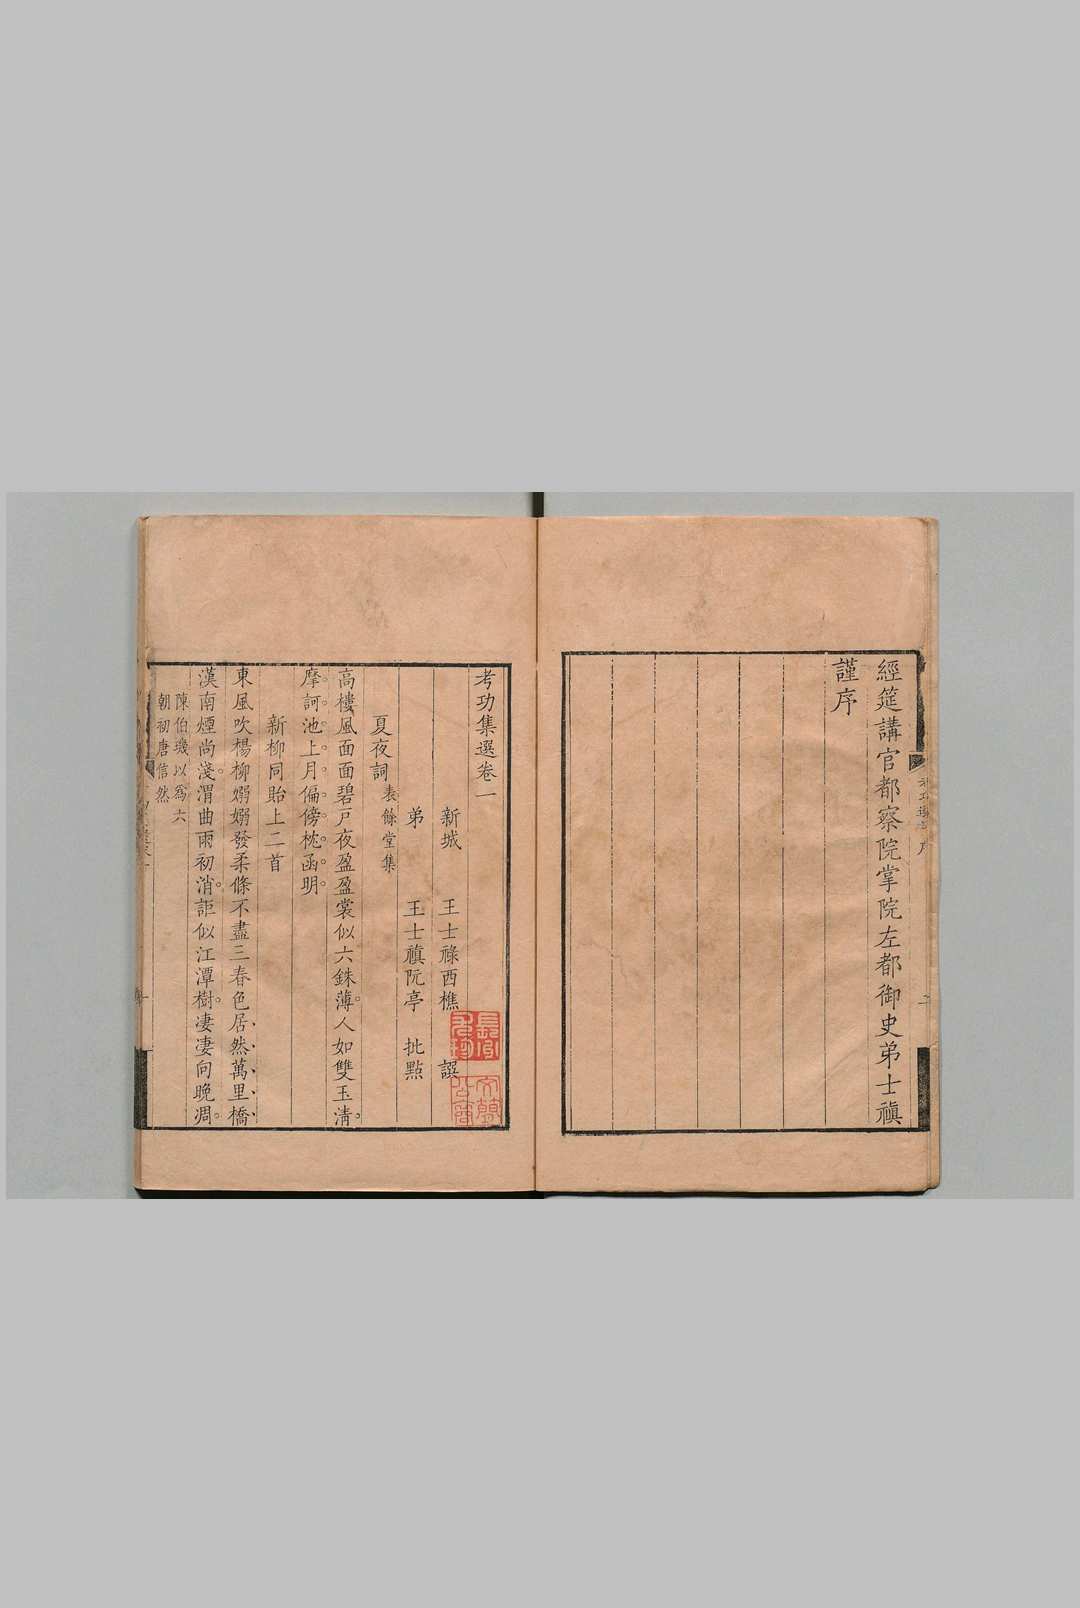 經筵講官都察院掌院左都御史弟士禛
謹序
考功集選卷一
新城 王士祿西樵 譔
弟 王士禛阮亭 批點
夏夜詞 表餘堂集
高樓風面面碧戶夜盈盈裳似六銖薄人如雙玉清
摩訶池上月偏傍枕函明
新柳同貽上二首
東風吹楊柳嫋嫋發柔條不盡三春色居然萬里橋
漢南煙尚淺渭曲雨初消詎似江潭樹淒淒向晚凋
陳伯璣以爲六
朝初唐信然